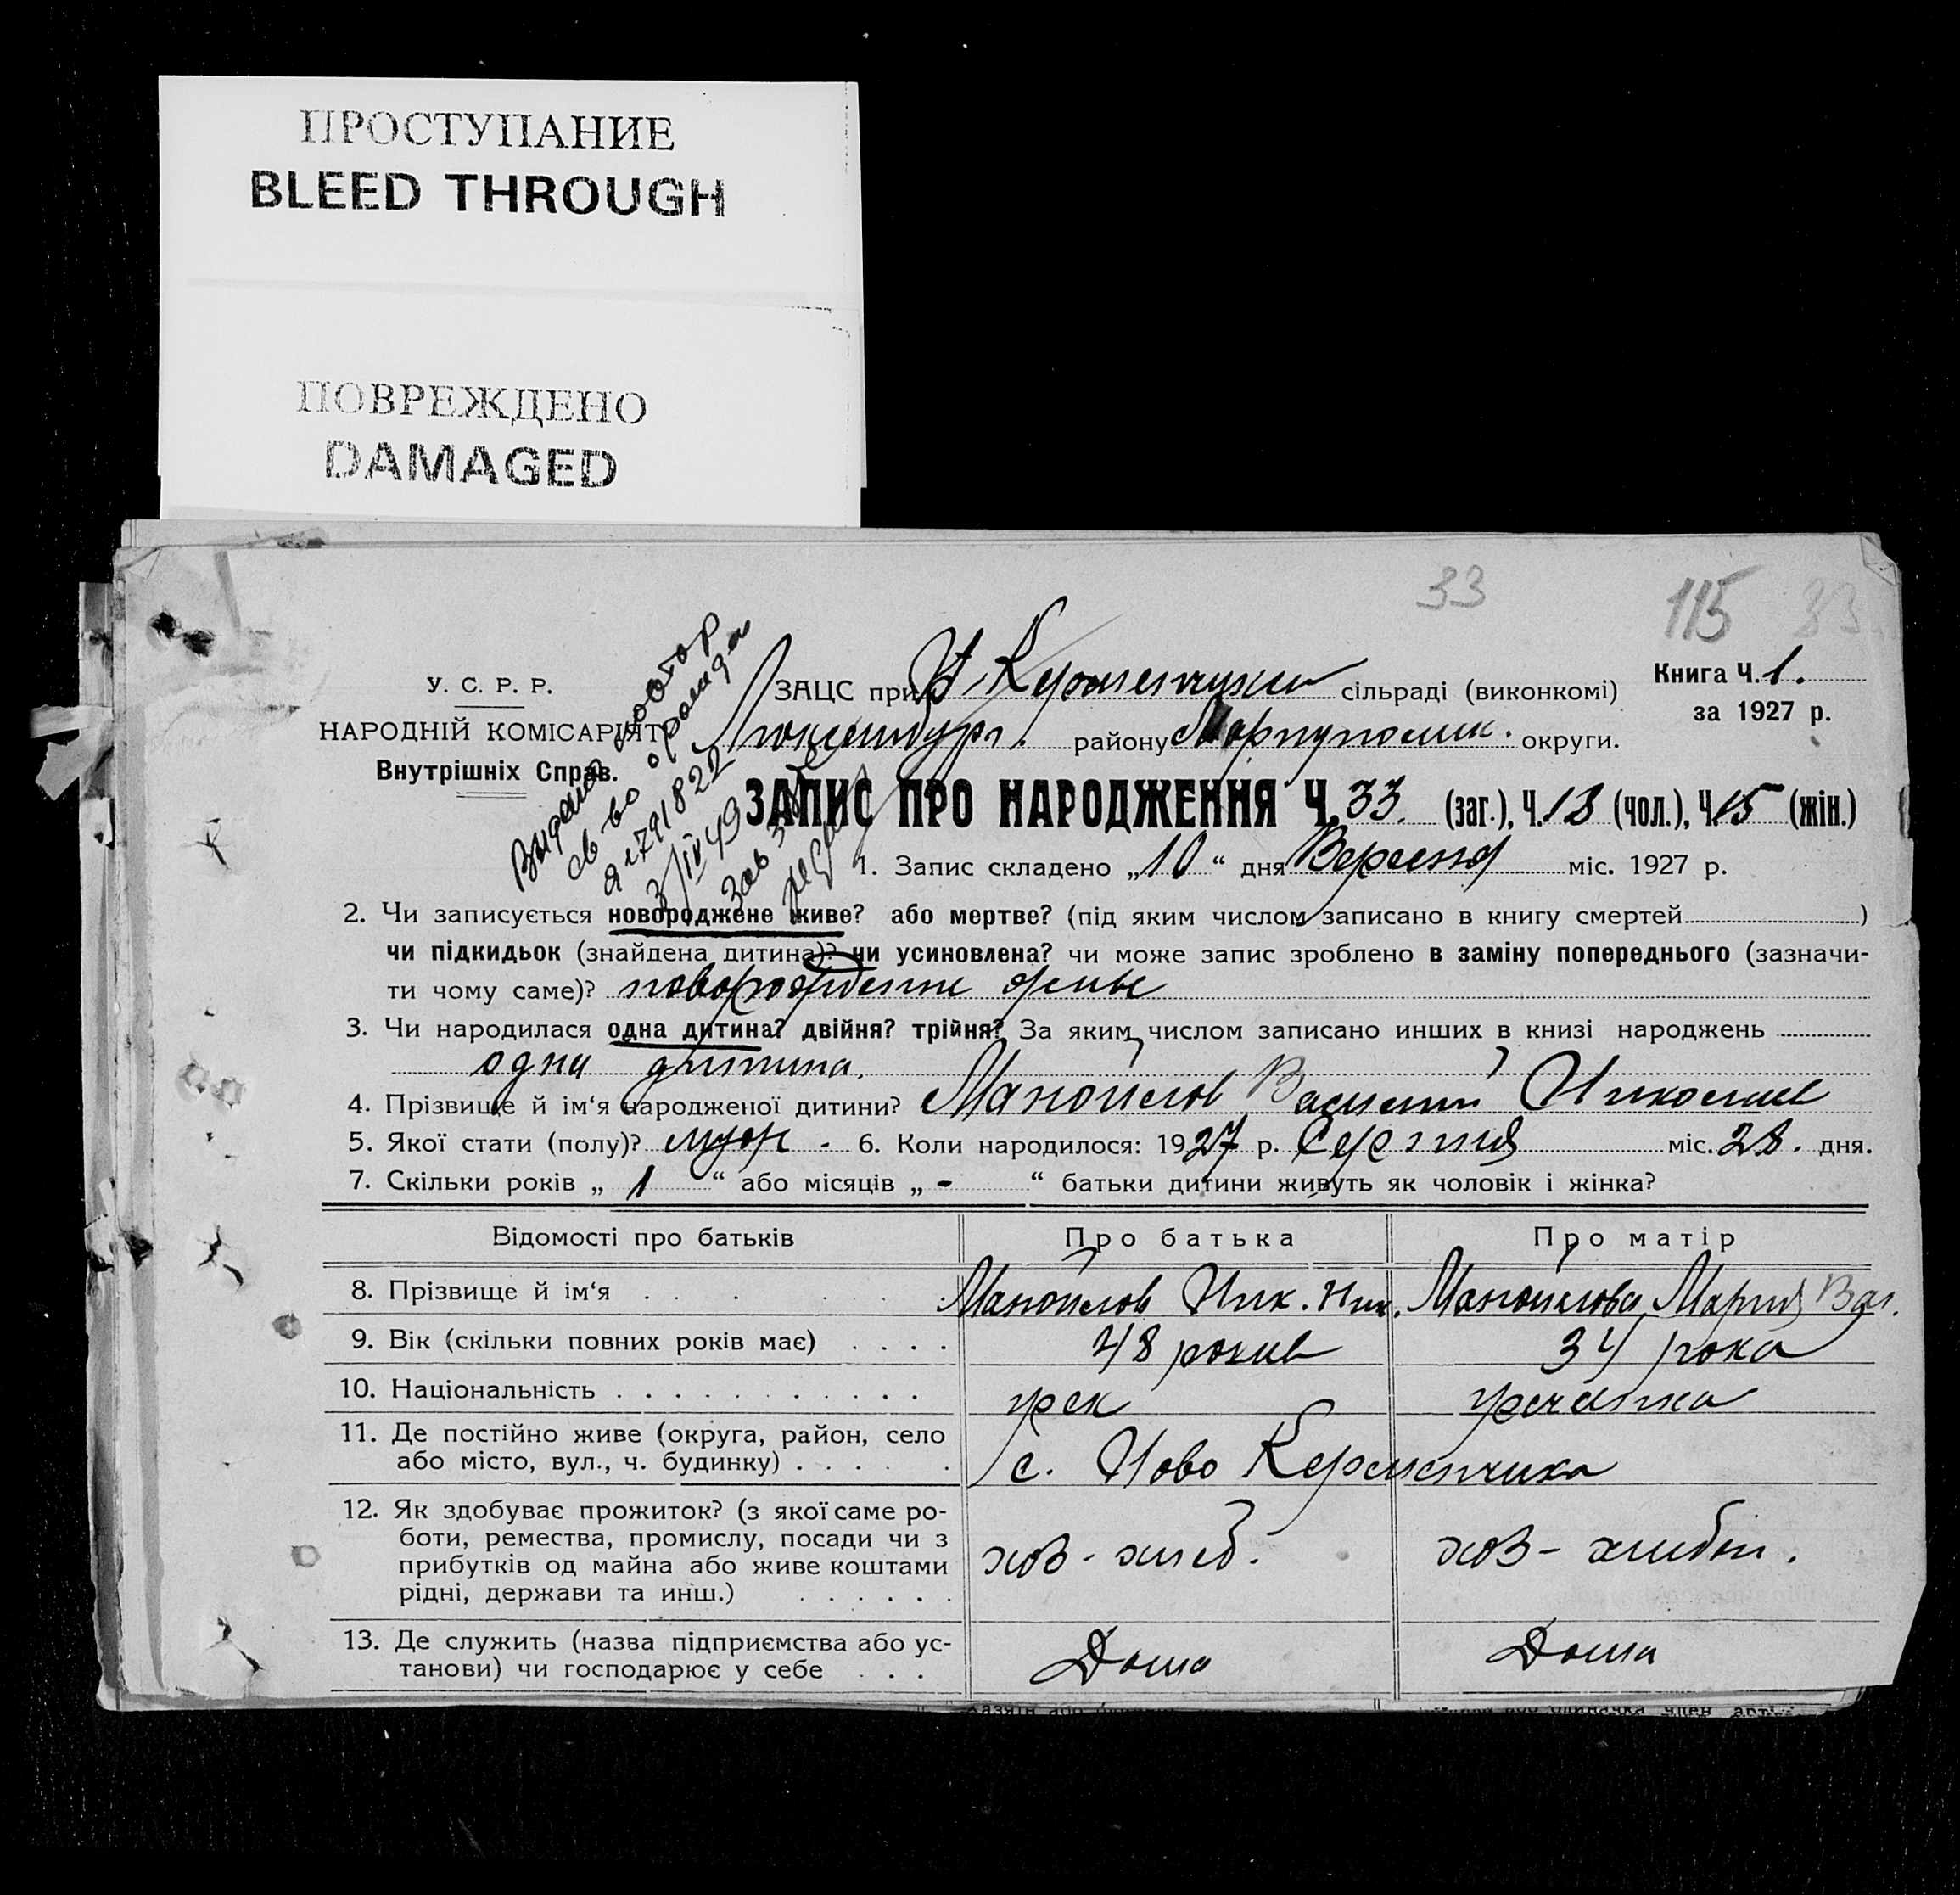 ПРОСТУПАНИЕ
BLEED THROUGH
ПОВРЕЖДЕНО
DAMAGED
33
115 33
Книга Ч. 1.
за 1927 р.
У. С. Р. Р.
НАРОДНІЙ КОМІСАРІЯТ
Внутрішніх Справ.
ЗАЦС при Н-Керменчики сільраді (виконкомі)
району округи.
св-во
3/IV 49
ЗАПИС ПРО НАРОДЖЕННЯ Ч. 33. (заг.), Ч. 18 (чол.), Ч. 15 (жін.)
1. Запис складено „10“ дня Вересня міс. 1927 р.
2. Чи записується новороджене живе? або мертве? (під яким числом записано в книгу смертей )
чи підкидьок (знайдена дитина)? чи усиновлена? чи може запис зроблено в заміну попереднього (зазначи-
ти чому саме)? новороджене живе
3. Чи народилася одна дитина? двійня? трійня? За яким числом записано инших в книзі народжень
одна дитина.
4. Прізвище й ім‘я народженої дитини? Манойлов Василий Николаев
5. Якої стати (полу)? муж. 6. Коли народилося: 1927 р. Серпня міс. 28. дня.
7. Скільки років „ 1 “ або місяців „ - “ батьки дитини живуть як чоловік і жінка?
Відомості про батьків Про батька Про матір
8. Прізвище й ім‘я Манойлов Ник. Ник. Манойлова Мария Вас.
9. Вік (скільки повних років має) 48 рокив 34 рока
10. Національність грек гречанка
11. Де постійно живе (округа, район, село
або місто, вул., ч. будинку) с. Ново Керменчика
12. Як здобуває прожиток? (з якої саме ро-
боти, ремества, промислу, посади чи з
прибутків од майна або живе коштами
рідні, держави та инш.)
13. Де служить (назва підприємства або ус-
танови) чи господарює у себе Дома Дома